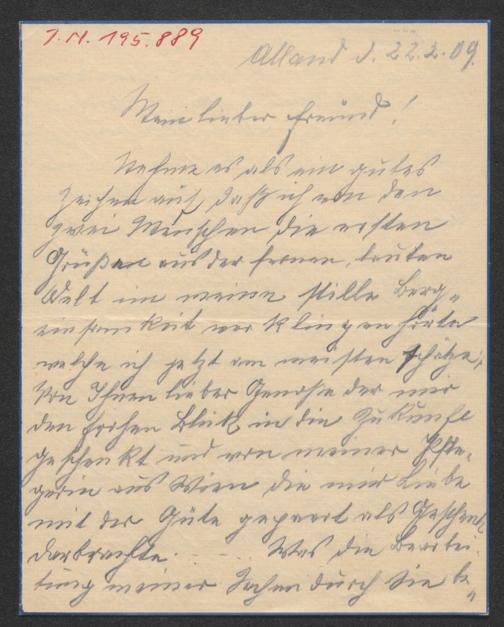 J.N. 195.889
Alland d. 22.2.09.
Mein lieber Freund!
Nehme es als ein gutes
Zeichen auf, daß ich von den
zwei Menschen die ersten
Grüße aus der fernen, lauten
Welt in meine stille Berg-
einsamkeit verklingen hörte
welche ich jetzt am meisten schätze,
Von Ihnen lieber Genosse der mir
den frohen Blick in die Zukunft
geschenkt und von meiner Pfle-
gerin aus Wien die mir Liebe
mit der Güte gepaart als Geschenk
darbrachte. Was die Bearbei-
tung meiner Sachen durch Sie be-